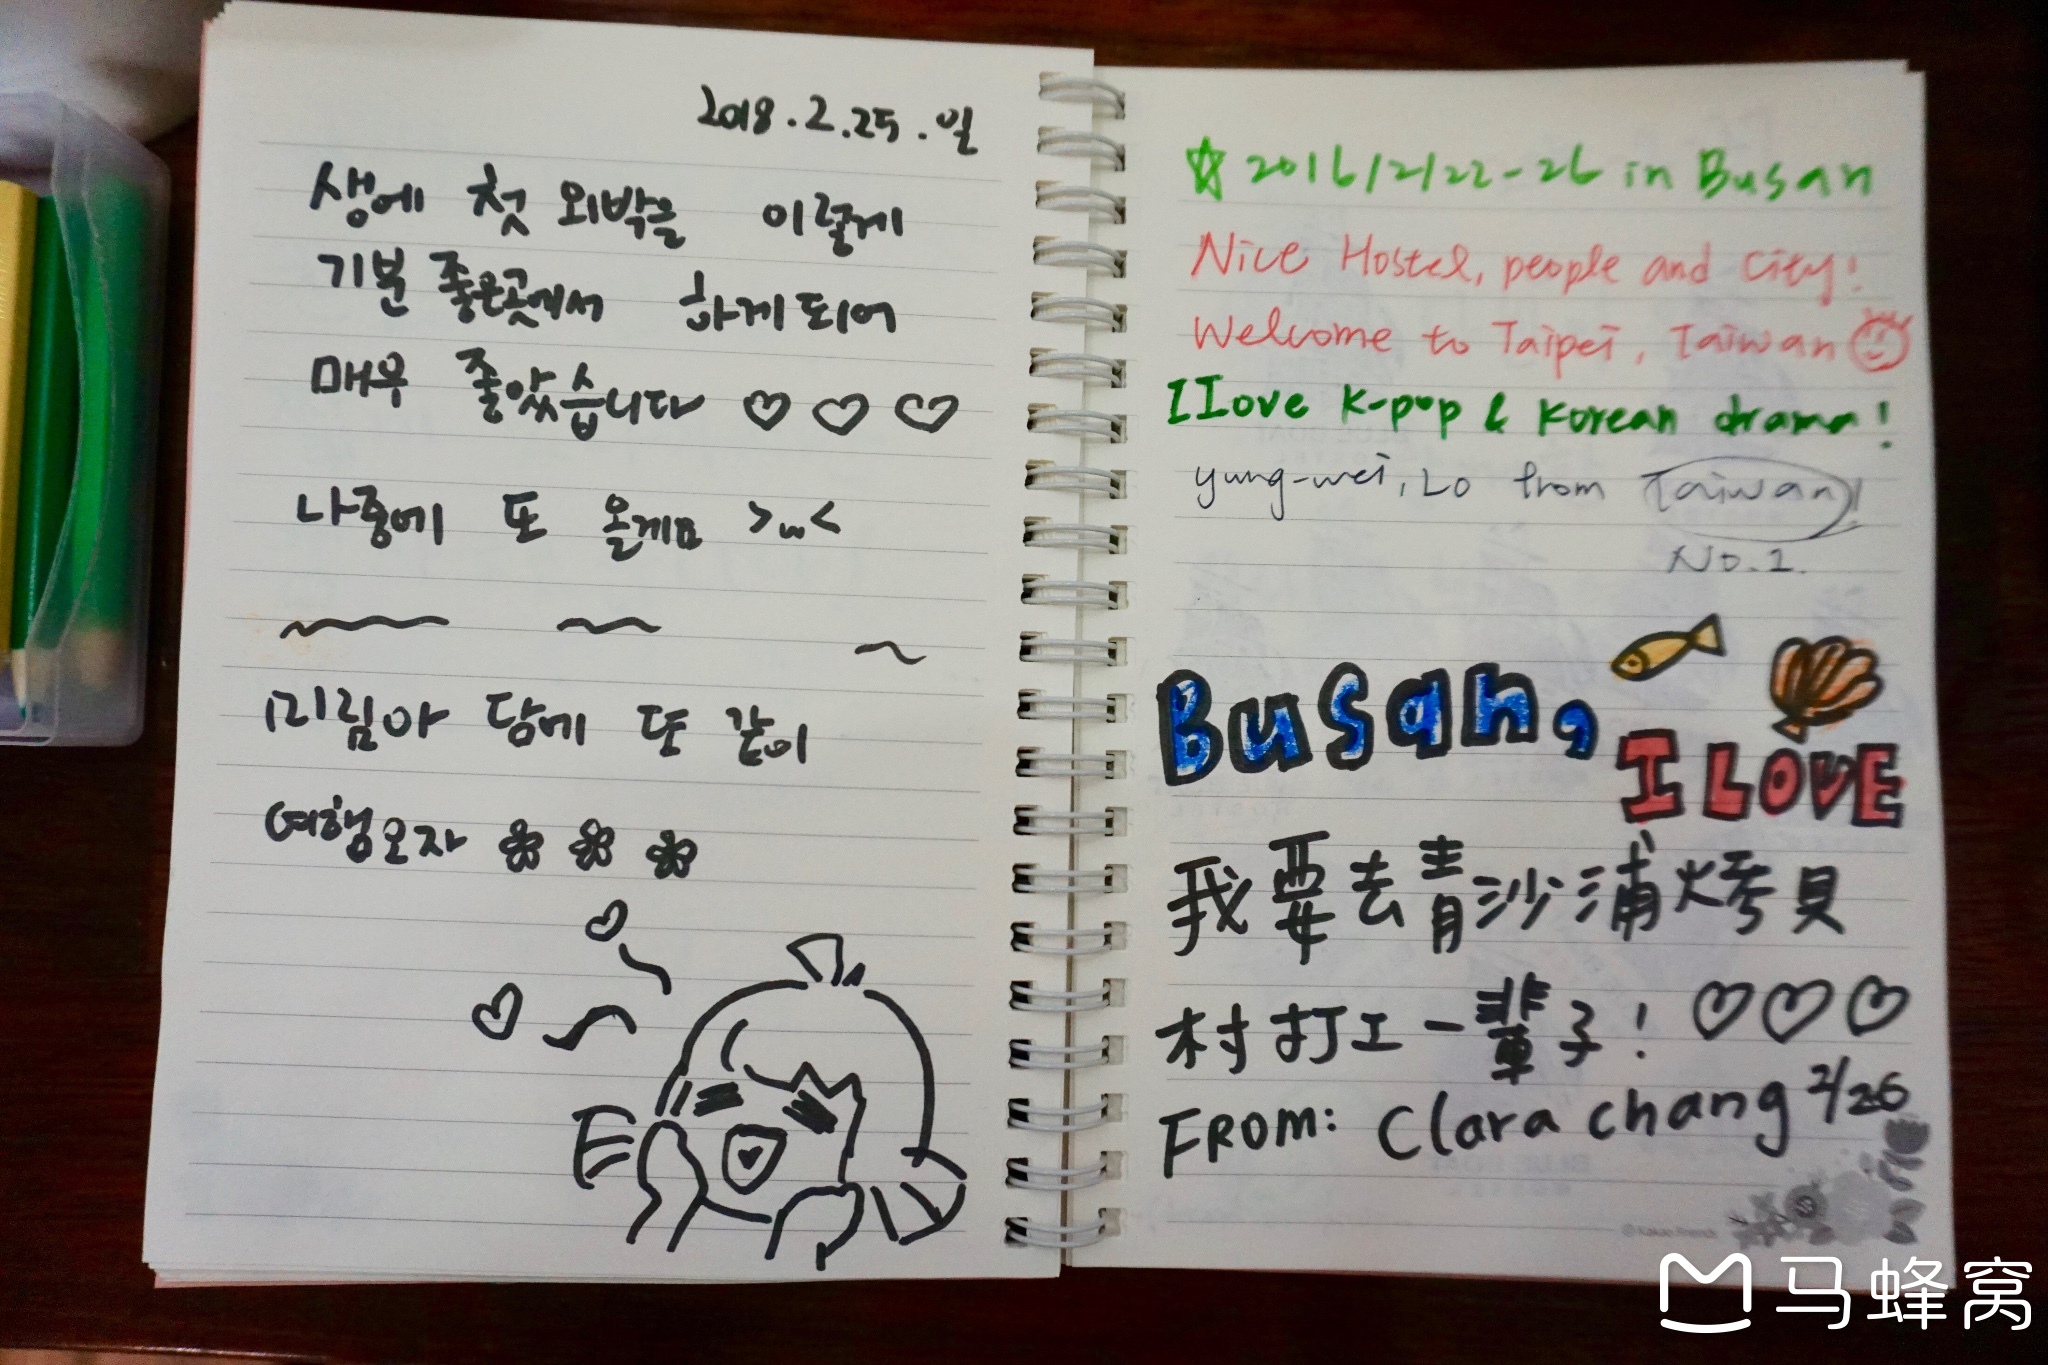 2018.2.25.일
생에 첫 외박을 이렇게
기분 좋은곳에서 하게되어
매우 좋았습니다 ♡ ♡ ♡
나중에 또 올게요 >w<
미림아 담에 또 같이
여행오자
☆ 2016/2/22-26 in Busan
Nice Hostel, people and City!
Welcome to Taipei, Taiwan
I Iove K-pop & Korean drama!
yung-wei, Lo from Taiwan!
No.1.
Busan,
I LOVE
我要去青沙浦烤貝
村打工一輩子! ♡♡♡
FROM: Clara chang 2/26
马蜂窝